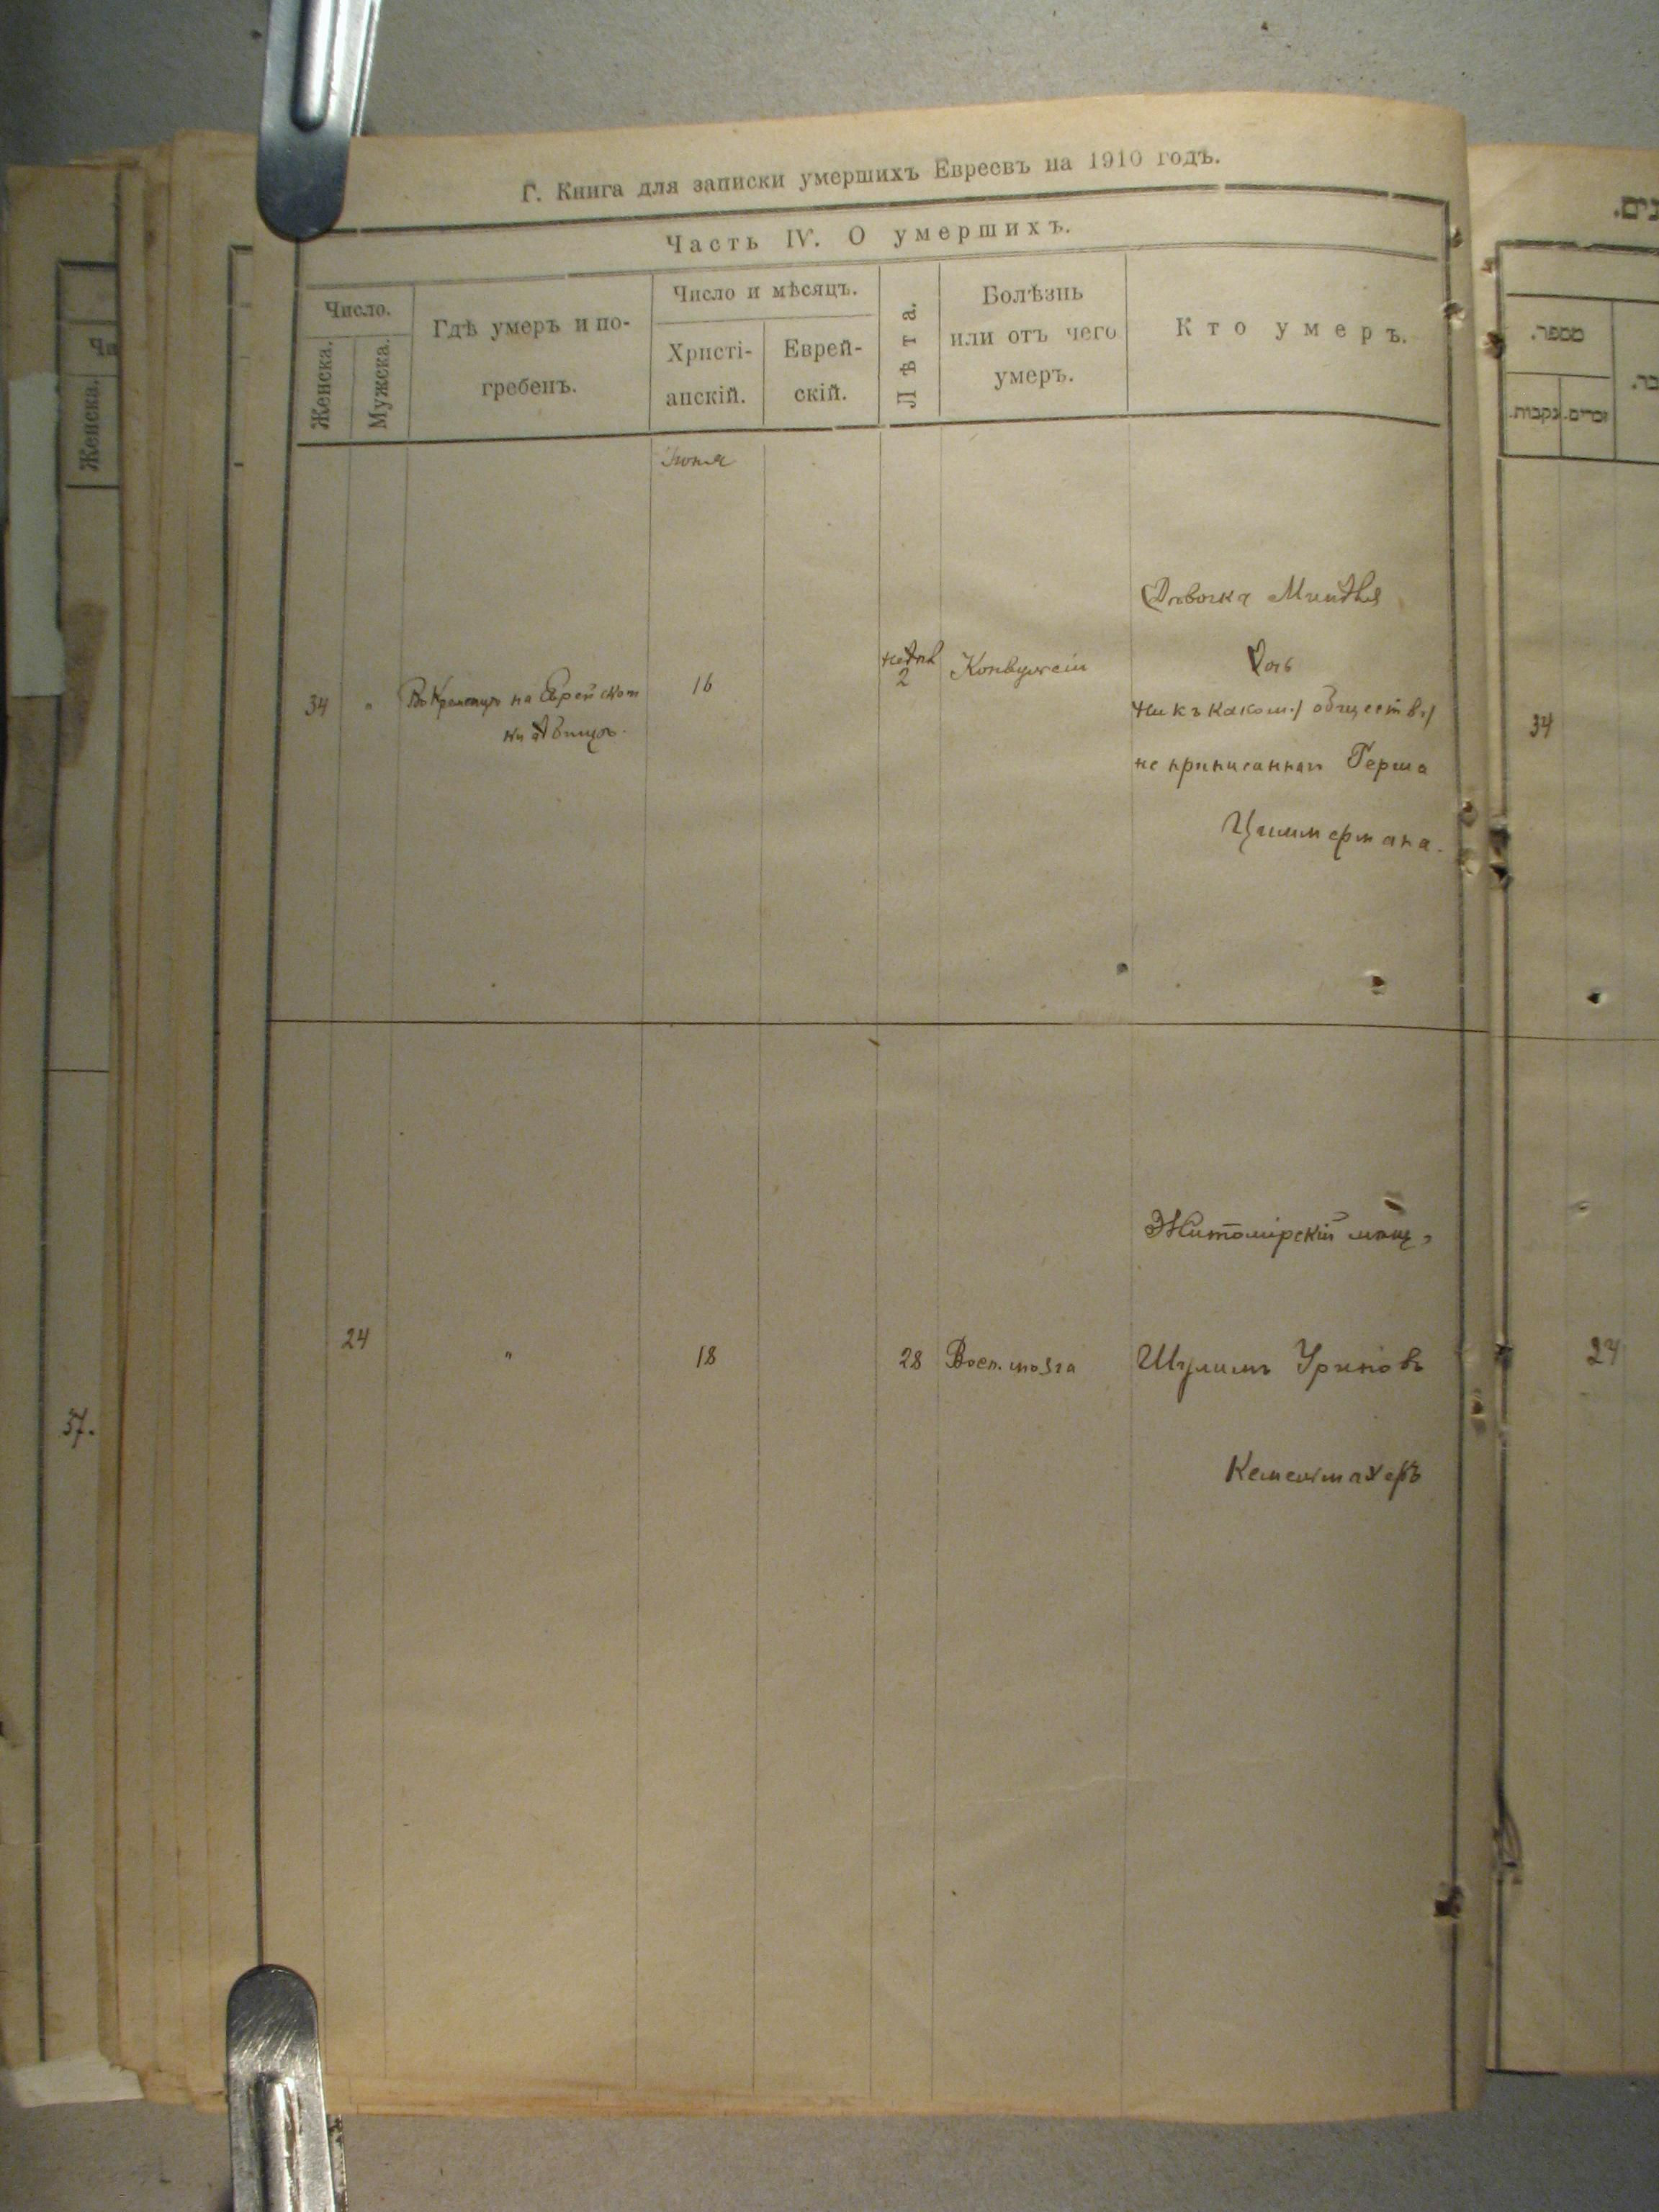 Г. Книга для записки умершихъ Евреевъ на 1910 годъ.
Часть IV. О умершихъ.
Число.
Женска.
Мужска.
Гдѣ умеръ и по-
гребенъ.
Число и мѣсяцъ.
Христі-
анскій.
Еврей-
скій.
Лѣта.
Болѣзнь
или отъ чего
умеръ.
Кто умеръ.
Іюня
34 " Въ Кременцѣ на Еврейском
кладбищѣ.
16
недѣл
2
Конвульсіи
Дѣвочка Миндля
Дочь
ни къ какому обществу
не приписаннаго Герша
Циммермана.
24 " 18 28 Восп. мозга
Житомірскій мѣщ.
Шулимъ
Чи
Женска.
37.
מספר.
זכרים.
נקבות.
34
24